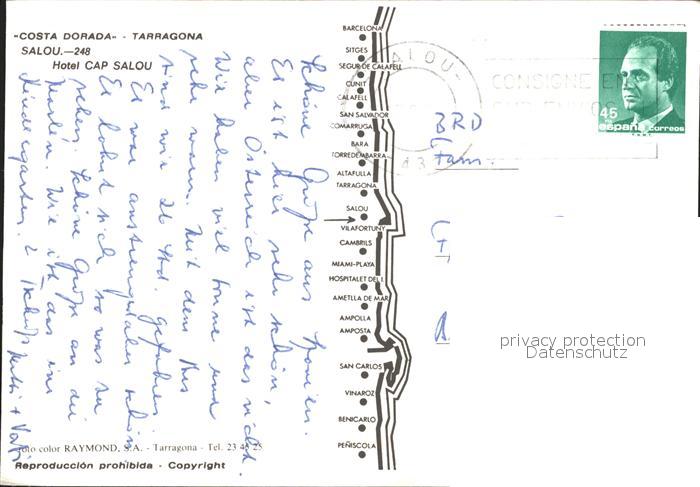 "COSTA DORADA" - TARRAGONA
SALOU.—248
Hotel CAP SALOU
Schöne Grüße aus Spanien.
Es ist hier sehr schön,
aber Österreich ist das nicht.
Wir haben viel Sonne und
sehr warm. Mit dem Bus
sind wir 26 Std. gefahren.
Es war anstrengend aber schön
Es lohnt sich so was zu
sehen. Schöne Grüße an die
Wie ist das im
Kindergarten?
+ Vati
BARCELONA
SITGES
SEGUR DE CALAFELL
CUNIT
CALAFELL
SAN SALVADOR
COMARRUGA
BARA
TORREDEMBARRA
ALTAFULLA
TARRAGONA
SALOU
VILAFORTUNY
CAMBRILS
MIAMI-PLAYA
HOSPITALET DEL I.
AMETLLA DE MAR
AMPOLLA
AMPOSTA
SAN CARLOS
VINAROZ
BENICARLO
PEÑISCOLA
SALOU
CONSIGNE EN
45
PTA
españa correos
BRD
Fam.
privacy protection
Datenschutz
Foto color RAYMOND, S.A. - Tarragona - Tel. 23 45 25
Reproducción prohibida - Copyright